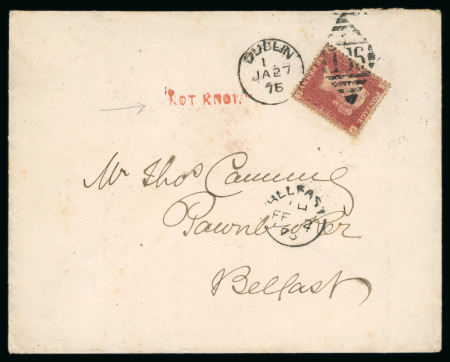 DUBLIN
1
JA 27
76
186
NOT KNOWN
Mr Thos Cumming
Pawnbroker
BELFAST
FE
Belfast